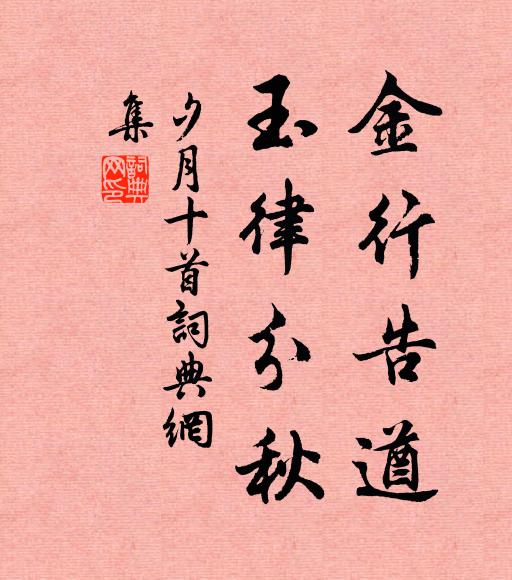 金行告遒
玉律分秋
夕月十首詞典網
集
詞典
网印